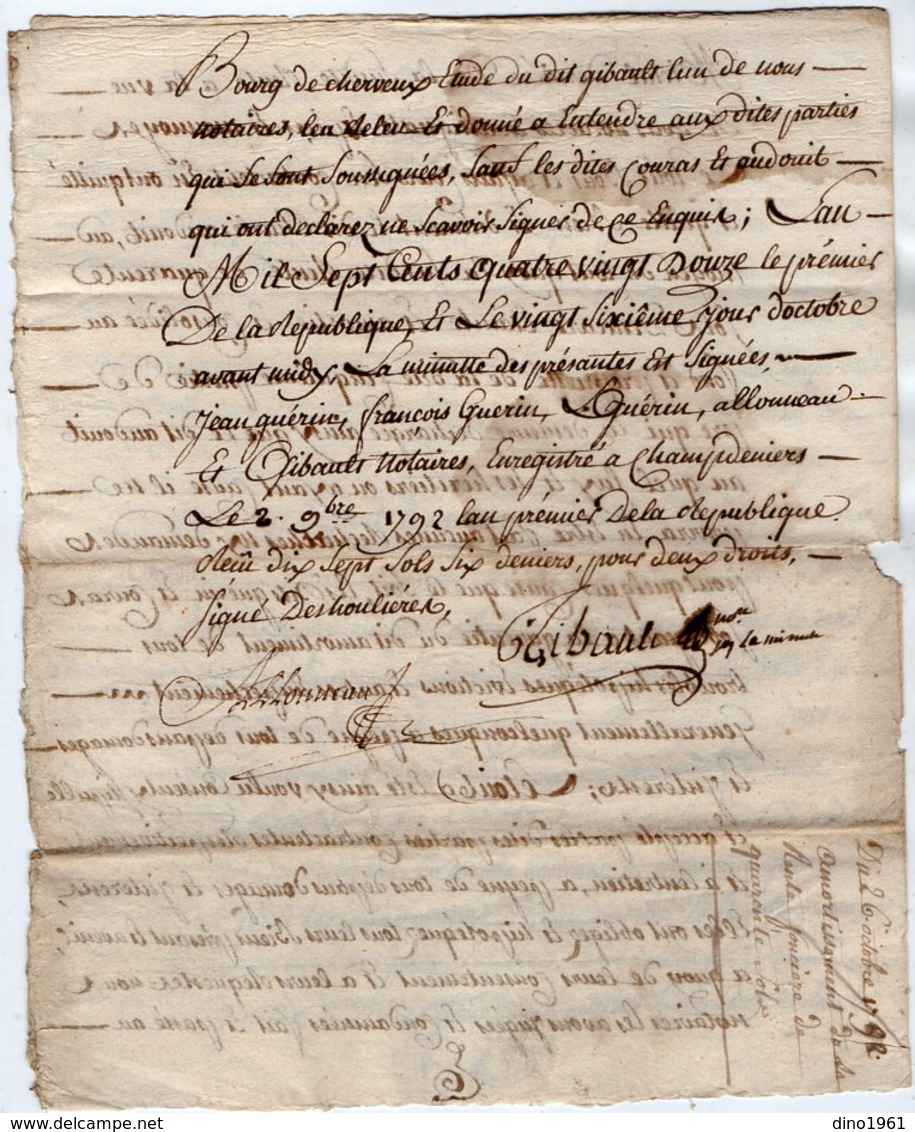 Bourg de cherveux Etude du dit gibault lun de nous
notaires, leu releu Et donné a Entendre aux dites parties
qui Se Sont Soussignées, Sauf les dites Couras Et audouit
qui ont declarez ne Scavoir Signer de Ce Enquis; Lan
Mil Sept Cents Quatre vingt Douze le prémier
De la Republique, Et Le vingt Sixiême jour doctobre
avant midy, La minutte des présantes Est Signées,
Jean guérin, françois Guerin, L. Guérin, allonneau
Et Gibault Notaires, Enregistré a Champdeniers
Le 2. 9bre 1792 lan prémier De la Republique
Reçû dix Sept Sols Six deniers, pour deux droits,
Signé Deshoulières,
Gibault nore
la minute
Allonneau
Du 26 octobre 1792.
amortissement de la
Rente fonciere de
quarente Sols
dino1961